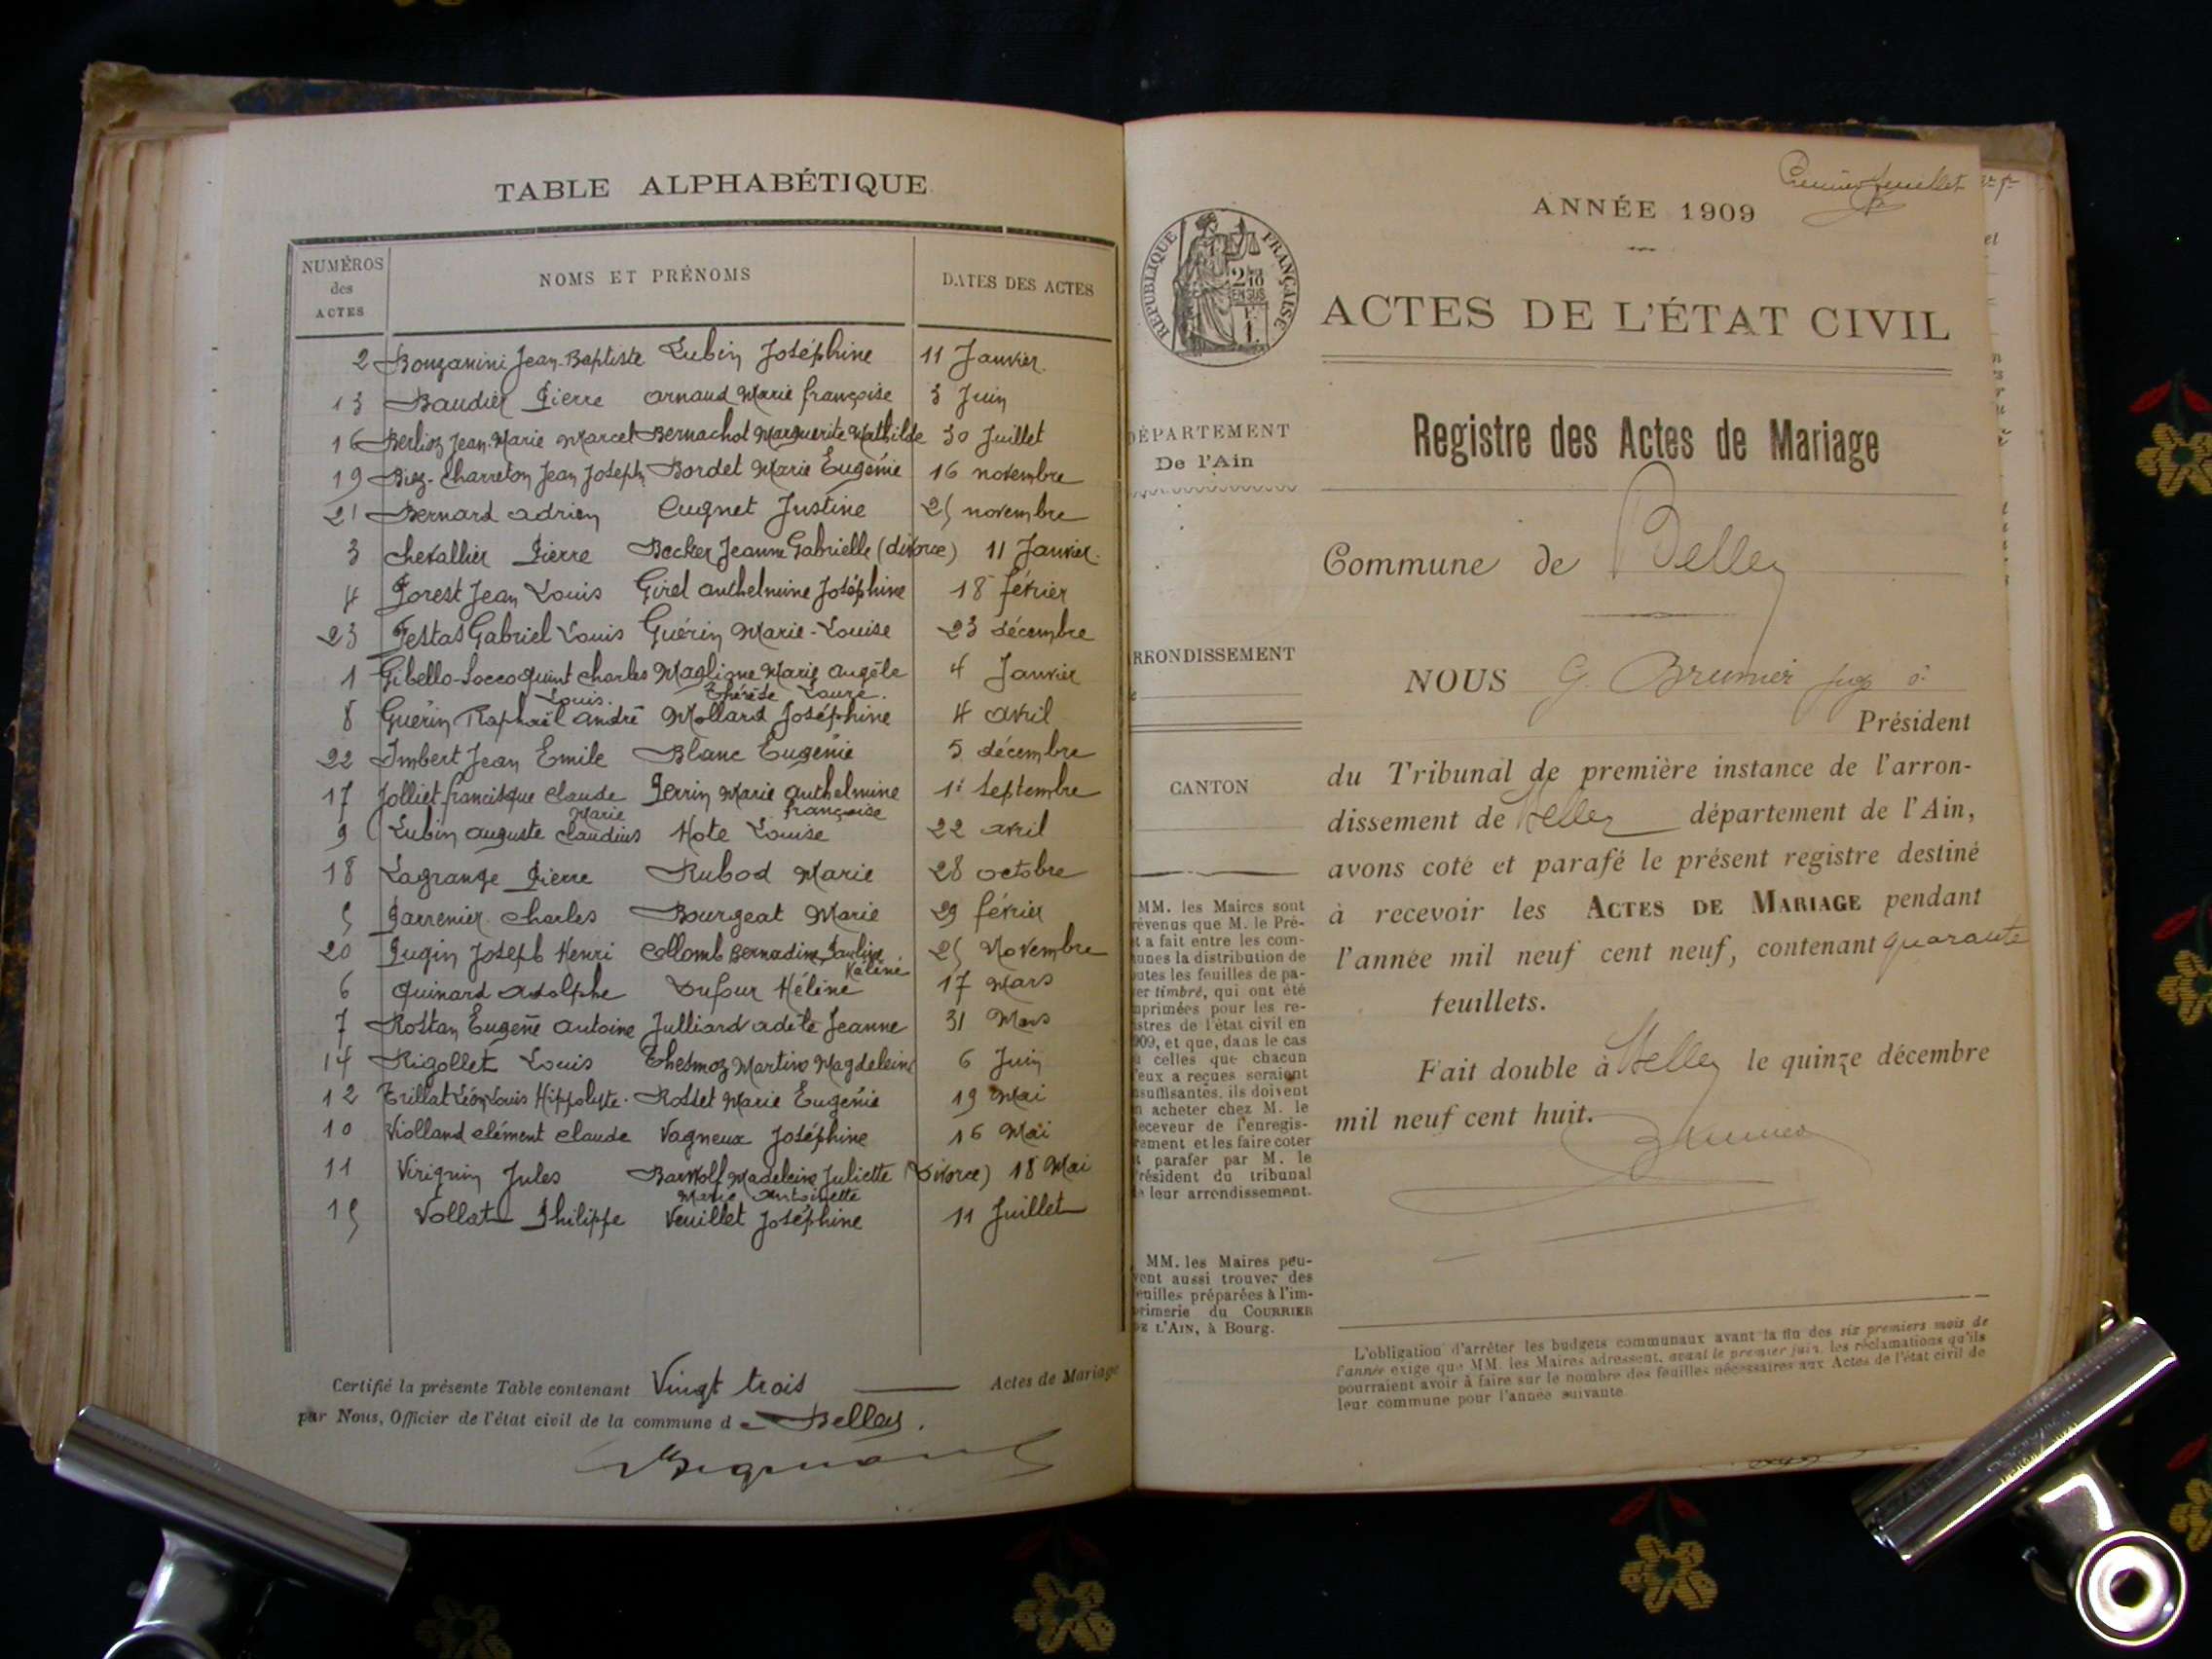 TABLE ALPHABÉTIQUE
NUMÉROS des ACTES
NOMS ET PRÉNOMS
DATES DES ACTES
2 Bonzanini Jean-Baptiste Lubin Joséphine 11 Janvier.
13 Baudier Pierre Arnaud Marie françoise 3 Juin
16 Berlioz Jean-Marie Marcel Bernachot Marguerite Mathilde 30 Juillet
19 Biez-Charreton Jean Joseph Bordet Marie Eugénie 16 novembre
21 Bernard Adrien Cugnet Justine 25 novembre
3 Chevallier Pierre Becker Jeanne Gabrielle (divorce) 11 Janvier.
4 Forest Jean Louis Girel Anthelmine Joséphine 18 février
23 Festas Gabriel Louis Guérin Marie-Louise 23 décembre
1 Gibello-Socco quint Charles Maglione Marie Angèle 4 Janvier
Louis. Thérèse Laure.
8 Guérin Raphaël André Mollard Joséphine 4 avril
22 Imbert Jean Emile Blanc Eugénie 5 décembre
17 Jolliet francisque Claude Perrin Marie Anthelmine 1er Septembre
Marie françoise
9 Lubin Auguste Claudius Hote Louise 22 avril
18 Lagrange Pierre Rubod Marie 28 octobre
5 Parrenier Charles Bourgeat Marie 29 février
20 Pugin Joseph Henri Collomb Bernadine Pauline 25 Novembre
6 Quinard Adolphe Dufour Hélène 17 Mars
7 Rostan Eugène Antoine Julliard Adèle Jeanne 31 Mars
14 Rigollet Louis Thesmoz Martine Magdeleine 6 Juin
12 Trillat Léon Louis Hippolyte. Rosset Marie Eugénie 19 Mai
10 Violland Clément Claude Vagneux Joséphine 16 Mai
11 Virignin Jules Madeleine Juliette (Divorce) 18 Mai
Marie Antoinette
15 Vollat Philippe Veuillet Joséphine 11 Juillet
Certifié la présente Table contenant Vingt trois Actes de Mariage
par Nous, Officier de l'état civil de la commune de Belley.
Premier feuillet
ANNÉE 1909
RÉPUBLIQUE FRANÇAISE
ACTES DE L'ÉTAT CIVIL
DÉPARTEMENT
De l'Ain
Registre des Actes de Mariage
Commune de Belley
RRONDISSEMENT
NOUS G. Brunier
Président
CANTON
du Tribunal de première instance de l'arron-
dissement de Belley département de l'Ain,
avons coté et parafé le présent registre destiné
à recevoir les ACTES DE MARIAGE pendant
l'année mil neuf cent neuf, contenant quarante
feuillets.
Fait double à Belley le quinze décembre
mil neuf cent huit.
Brunier
MM. les Maires sont
révenus que M. le Pré-
t a fait entre les com-
unes la distribution de
utes les feuilles de pa-
er timbré, qui ont été
mprimées pour les re-
istres de l'état civil en
909, et que, dans le cas
celles que chacun
'eux a reçues seraient
nsuffisantes, ils doivent
n acheter chez M. le
eceveur de l'enregis-
rement et les faire coter
t parafer par M. le
résident du tribunal
e leur arrondissement.
MM. les Maires peu-
vent aussi trouver des
euilles préparées à l'im-
primerie du COURRIER
DE L'AIN, à Bourg.
L'obligation d'arrêter les budgets communaux avant la fin des six premiers mois de
l'année exige que MM. les Maires adressent, avant le premier juin, les réclamations qu'ils
pourraient avoir à faire sur le nombre des feuilles nécessaires aux Actes de l'état civil de
leur commune pour l'année suivante